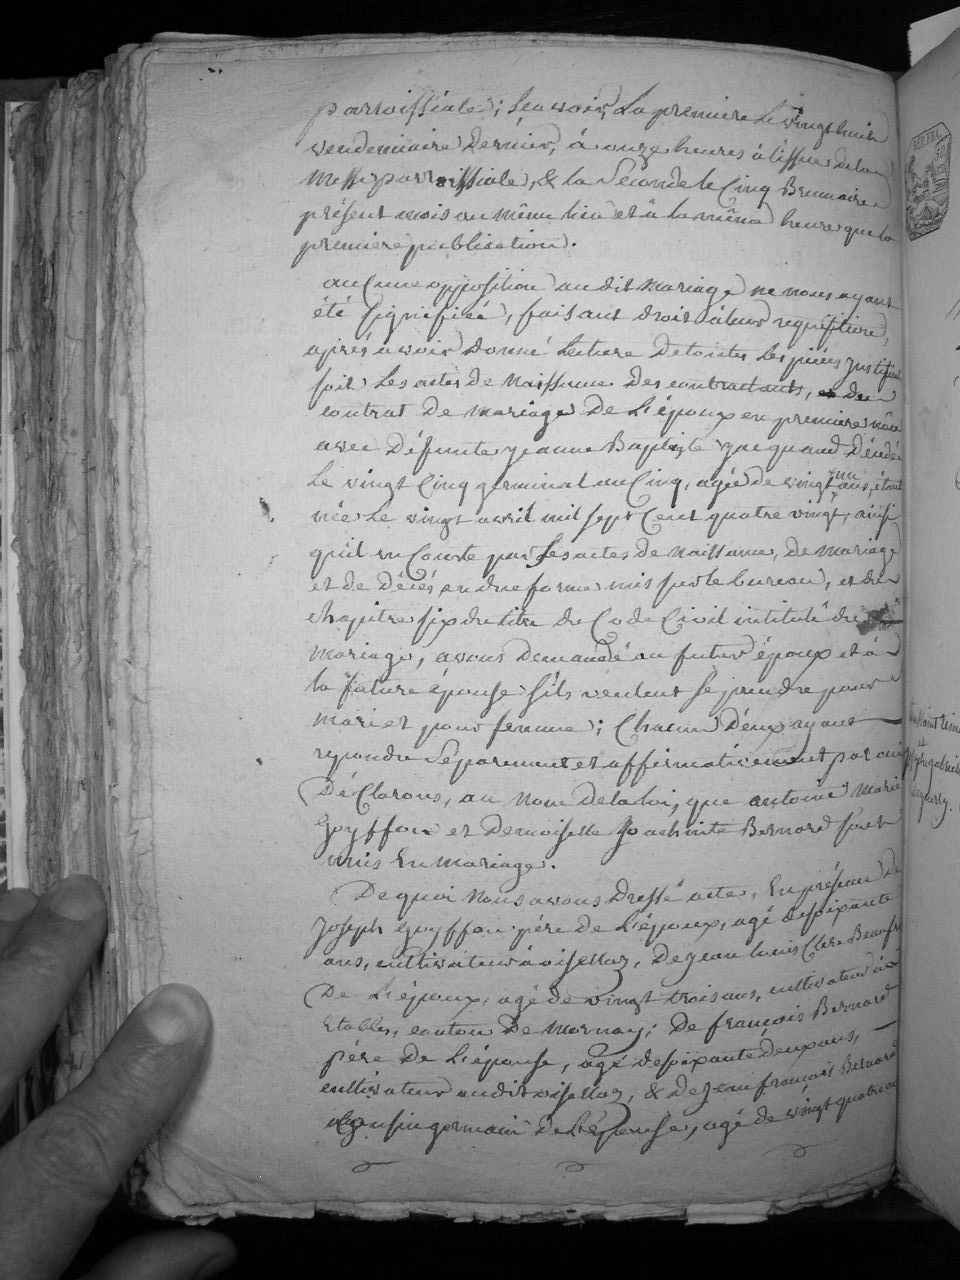 parroissiale; Scavoir, La premiere le vingt huit
vendemiaire Dernier, à onze heures à l'issue de la
Messe parroissiale, & la Seconde le Cinq Brumaire
présent mois au même lieu et à la même heure que la
premiere publication.
aucune opposition au dit Mariage ne nous ayant
été Signifiée, faisant droit à leur requisition,
après avoir Donné Lecture De toutes Les pièces Justifi
soit Les actes De Naissance Des contractants, du
contrat De Mariage De L'époux en premiere
avec Défunte jeanne Baptiste jacquand Décédée
Le vingt Cinq germinal an Cinq, agée de vingt un ans, étant
née Le vingt avril mil sept Cent quatre vingt, ainsi
qu'il en Conste par Les actes de Naissance, De mariage
et de Décés en due forme mis sur le bureau, et du
chapitre six du titre du Code Civil intitulé du
Mariage, avons Demandé au futur époux et à
la future épouse s'ils veulent Se prendre pour
mari et pour femme; Chacun D'eux ayant
repondu Séparement et affirmativement par oui
Déclarons, au Nom de la loi, que antoine Marie
Goyffon et Demoiselle Joachinte Bernard sont
unis En Mariage.
De quoi Nous avons Dressé acte, En présence De
Joseph Goyffon père De L'époux, agé de soixante
ans, cultivateur à oisellaz, De Jean Louis Clerc Beaufre
De L'époux, agé de vingt trois ans, cultivateur à
Etables, canton De Mornay; De françois Bernard
père De L'épouse, agé de soixante deux ans,
cultivateur au dit oisellaz, & De Jean françois Bernard
Cousin germain De L'épouse, agé de vingt quatre
REP. FRA.
et